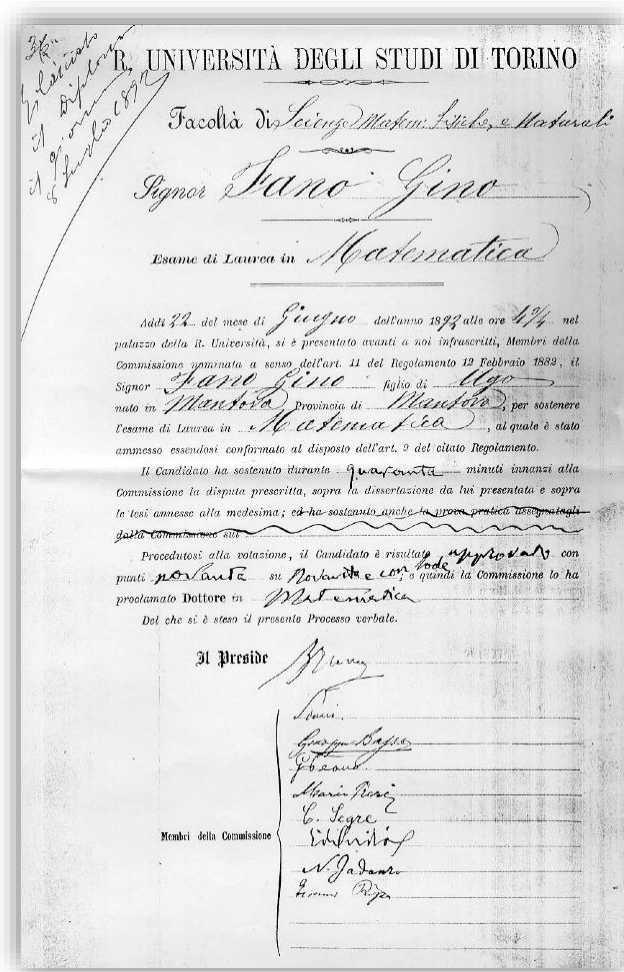 Rilasciato
il Diploma
il giorno
8 Luglio 1892
R. UNIVERSITÀ DEGLI STUDI DI TORINO
Facoltà di Scienze Matem. Fisiche, e Naturali
Signor Fano Gino
Esame di Laurea in Matematica
Addì 22 del mese di Giugno dell'anno 1892 alle ore 4 3/4 nel
palazzo della R. Università, si è presentato avanti a noi infrascritti, Membri della
Commissione nominata a senso dell'art. 11 del Regolamento 12 Febbraio 1882, il
Signor Fano Gino figlio di Ugo
nato in Mantova Provincia di Mantova, per sostenere
l'esame di Laurea in Matematica, al quale è stato
ammesso essendosi conformato al disposto dell'art. 9 del citato Regolamento.
Il Candidato ha sostenuto durante quaranta minuti innanzi alla
Commissione la disputa prescritta, sopra la dissertazione da lui presentata e sopra
le tesi annesse alla medesima; ed ha sostenuto anche la prova pratica assegnatagli
dalla Commissione sul
Procedutosi alla votazione, il Candidato è risultato approvato con
punti novanta su Novanta e con lode, e quindi la Commissione lo ha
proclamato Dottore in Matematica
Del che si è steso il presente Processo verbale.
Il Preside
Membri della Commissione
Giuseppe Basso
G Peano
Mario Pieri
C. Segre
EdOvidio
N. Jadanza